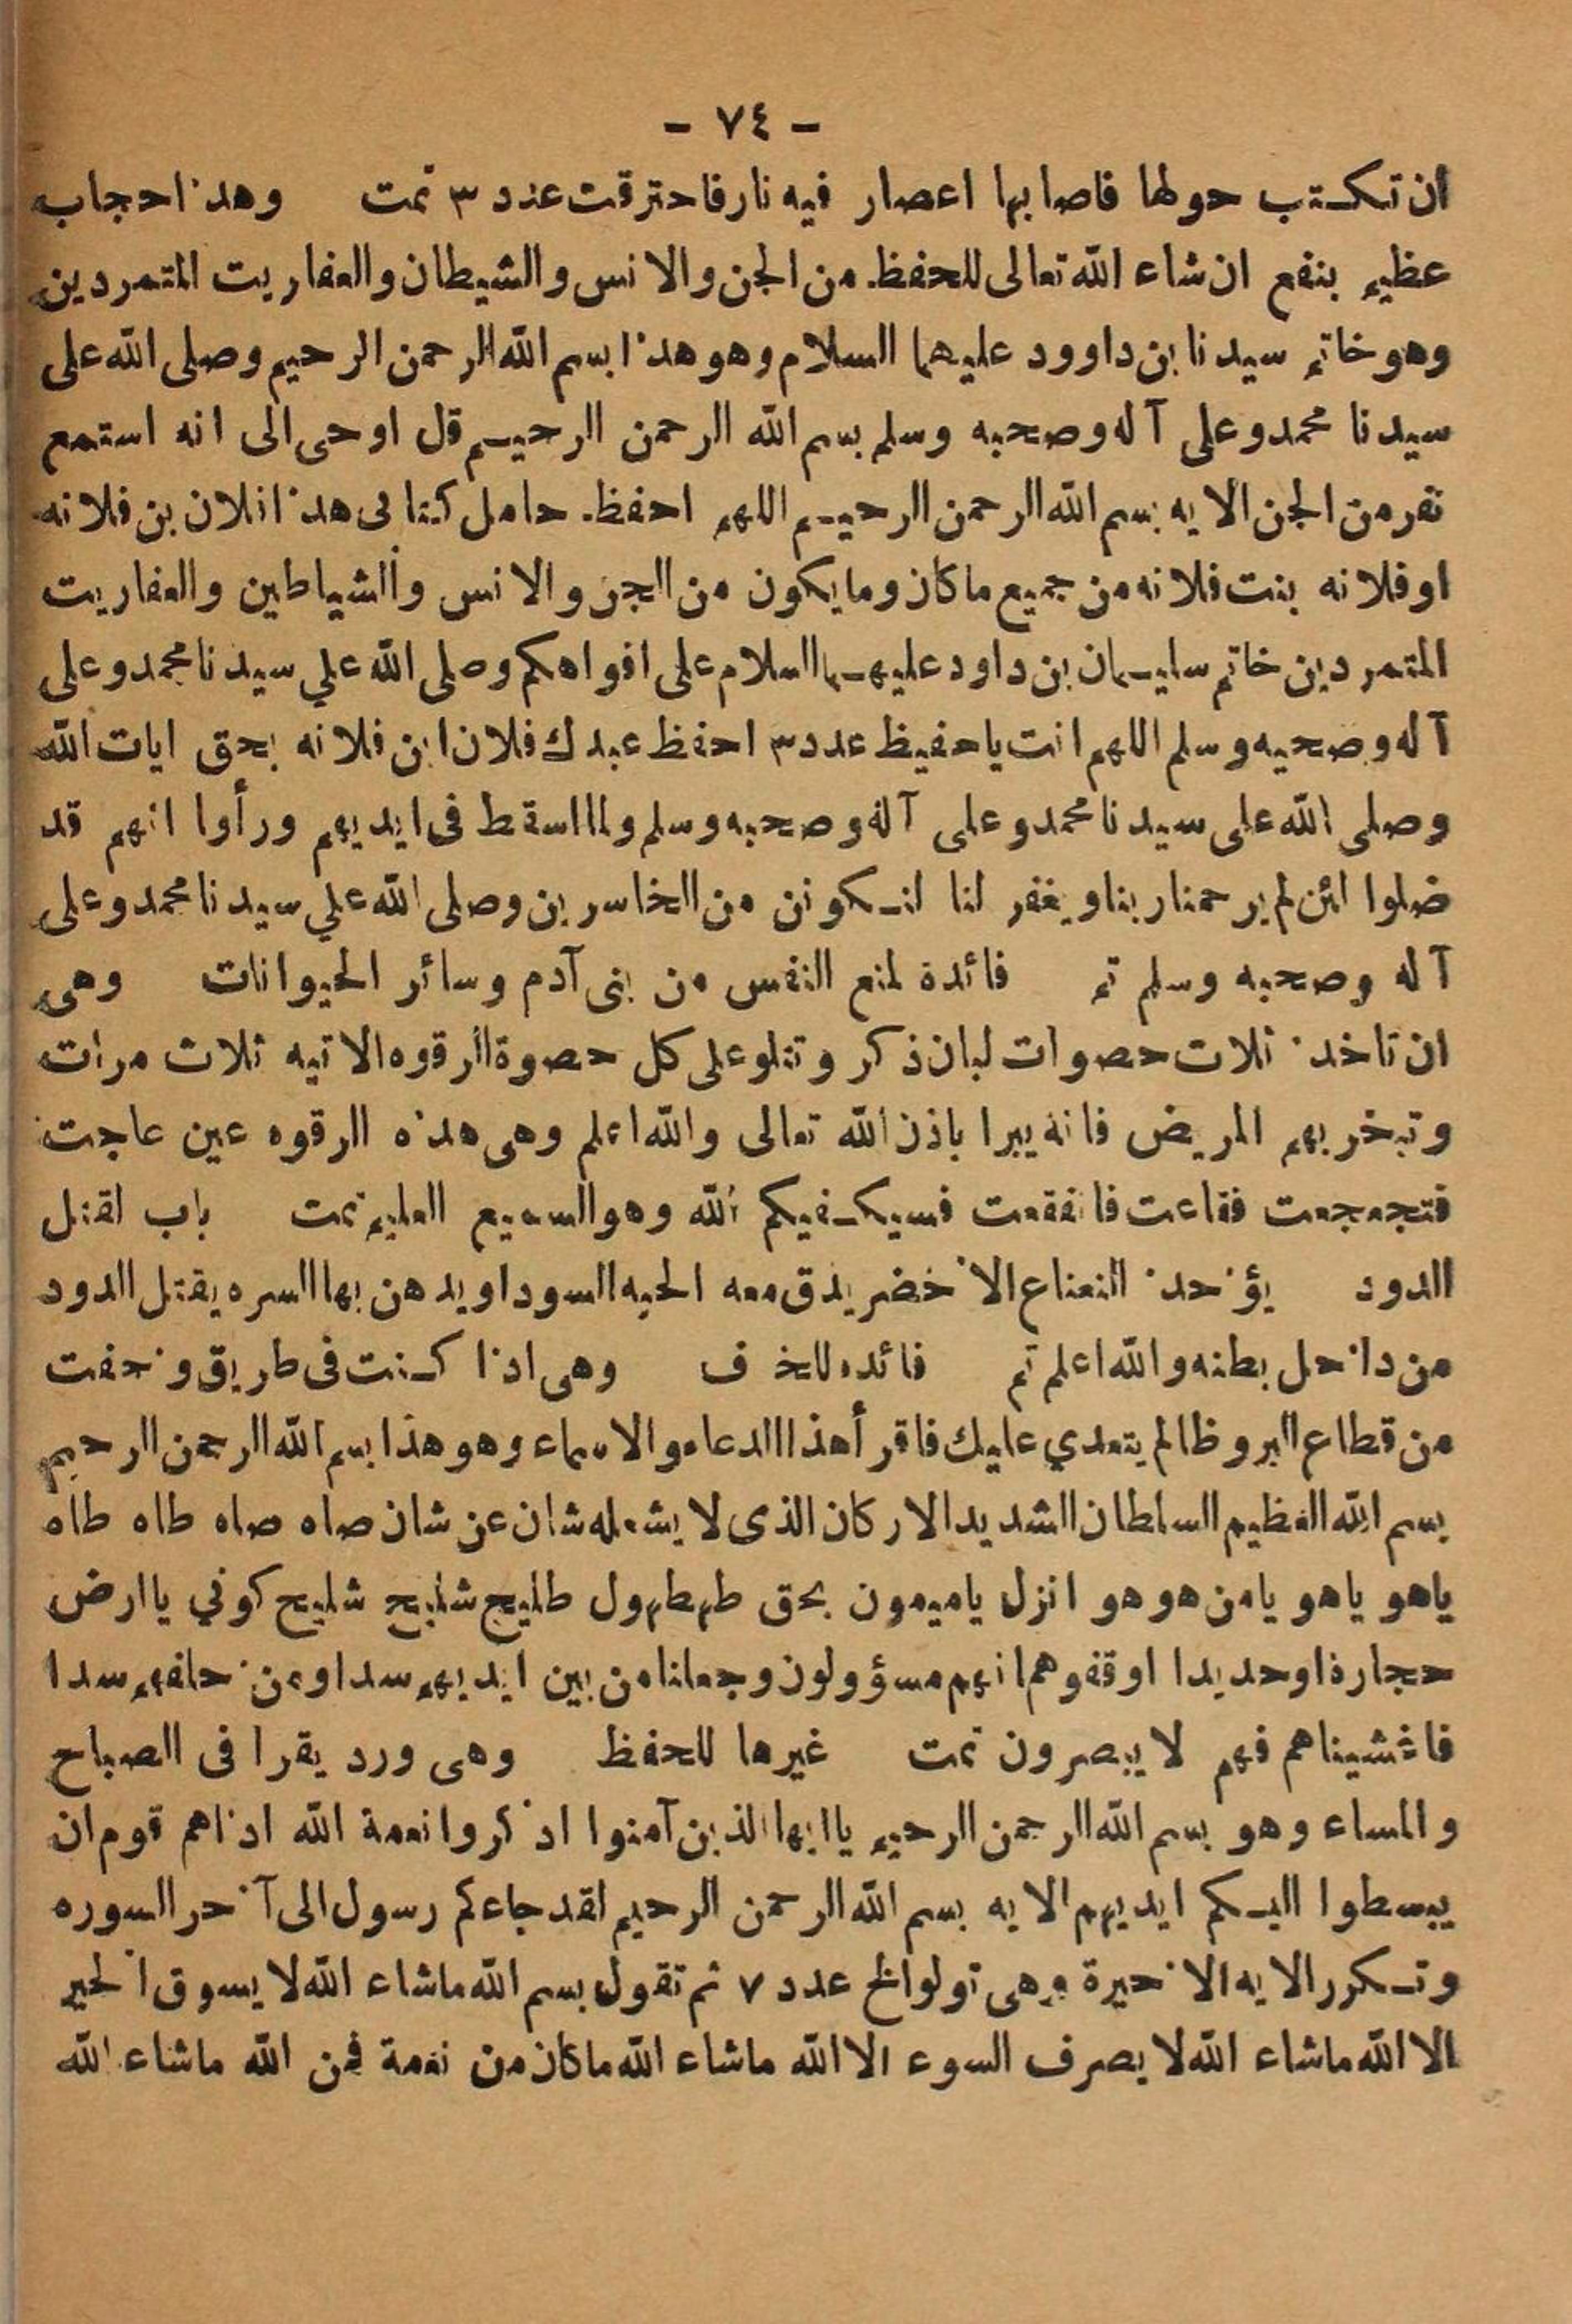 - ٧٤ -
ان تكتب حولها فاصابها اعصار فيه نار فاحترقت عدد ٣ تمت وهذا حجاب
عظيم بنفع ان شاء الله تعالى للحفظ من الجن والانس والشيطان والعفاريت المتمردين
وهو خاتم سيدنا بن داوود عليهما السلام وهو هذا بسم الله الرحمن الرحيم وصلى الله على
سيدنا محمد وعلى آله وصحبه وسلم بسم الله الرحمن الرحيم قل اوحى الى انه استمع
نفر من الجن الايه بسم الله الرحمن الرحيم اللهم احفظ حامل كتابى هذا فلان بن فلانه
او فلانه بنت فلانه من جميع ما كان وما يكون من الجن والانس والشياطين والعفاريت
المتمردين خاتم سليمان بن داود عليهما السلام على افواهكم وصلى الله علي سيدنا محمد وعلى
آله وصحبه وسلم اللهم انت ياحفيظ عدد ٣ احفظ عبدك فلان ابن فلانه بحق ايات الله
وصلى الله على سيدنا محمد وعلى آله وصحبه وسلم ولما اسقط فى ايديهم ورأوا انهم قد
ضلوا لئن لم يرحمنا ربنا ويغفر لنا لنكونن من الخاسرين وصلى الله علي سيدنا محمد وعلى
آله وصحبه وسلم تم فائدة لمنع النفس من بنى آدم وسائر الحيوانات وهى
ان تاخذ ثلاث حصوات لبان ذكر وتتلو على كل حصوة الرقوه الاتيه ثلاث مرات
وتبخر بهم المريض فانه يبرا باذن الله تعالى والله اعلم وهى هذه الرقوه عين عاجت
فتجعجعت فقاعت فانفقعت فسيكفيكم الله وهو السميع العليم تمت باب لقتل
الدود يؤخذ النعناع الاخضر يدق معه الحبه السودا ويدهن بها السره يقتل الدود
من داخل بطنه والله اعلم تم فائده للخ ف وهى اذا كنت فى طريق وخفت
من قطاع البر وظالم يتعدي عليك فاقر أهذا الدعاء والاسماء وهو هذا بسم الله الرحمن الرحيم
بسم الله العظيم السلطان الشديد الاركان الذى لا يشغله شان عن شان صاه صاه طاه طاه
ياهو ياهو يامن هو هو انزل ياميمون بحق طهطهول طليج شليح شليح كوني ياارض
حجارة او حديدا اوقفوهم انهم مسؤولون وجعلنا من بين ايديهم سدا ومن خلفهم سدا
فاغشيناهم فهم لا يبصرون تمت غيرها للحفظ وهى ورد يقرا فى الصباح
والمساء وهو بسم الله الرحمن الرحيم ياايها الذين آمنوا اذكروا نعمة الله اذاهم قوم ان
يبسطوا اليكم ايديهم الايه بسم الله الرحمن الرحيم لقد جاءكم رسول الى آخر السوره
وتكرر الايه الاخيرة وهى تولوا الخ عدد ٧ ثم تقول بسم الله ماشاء الله لا يسوق الخير
الا الله ماشاء الله لا يصرف السوء الا الله ماشاء الله ما كان من نعمة فمن الله ماشاء الله